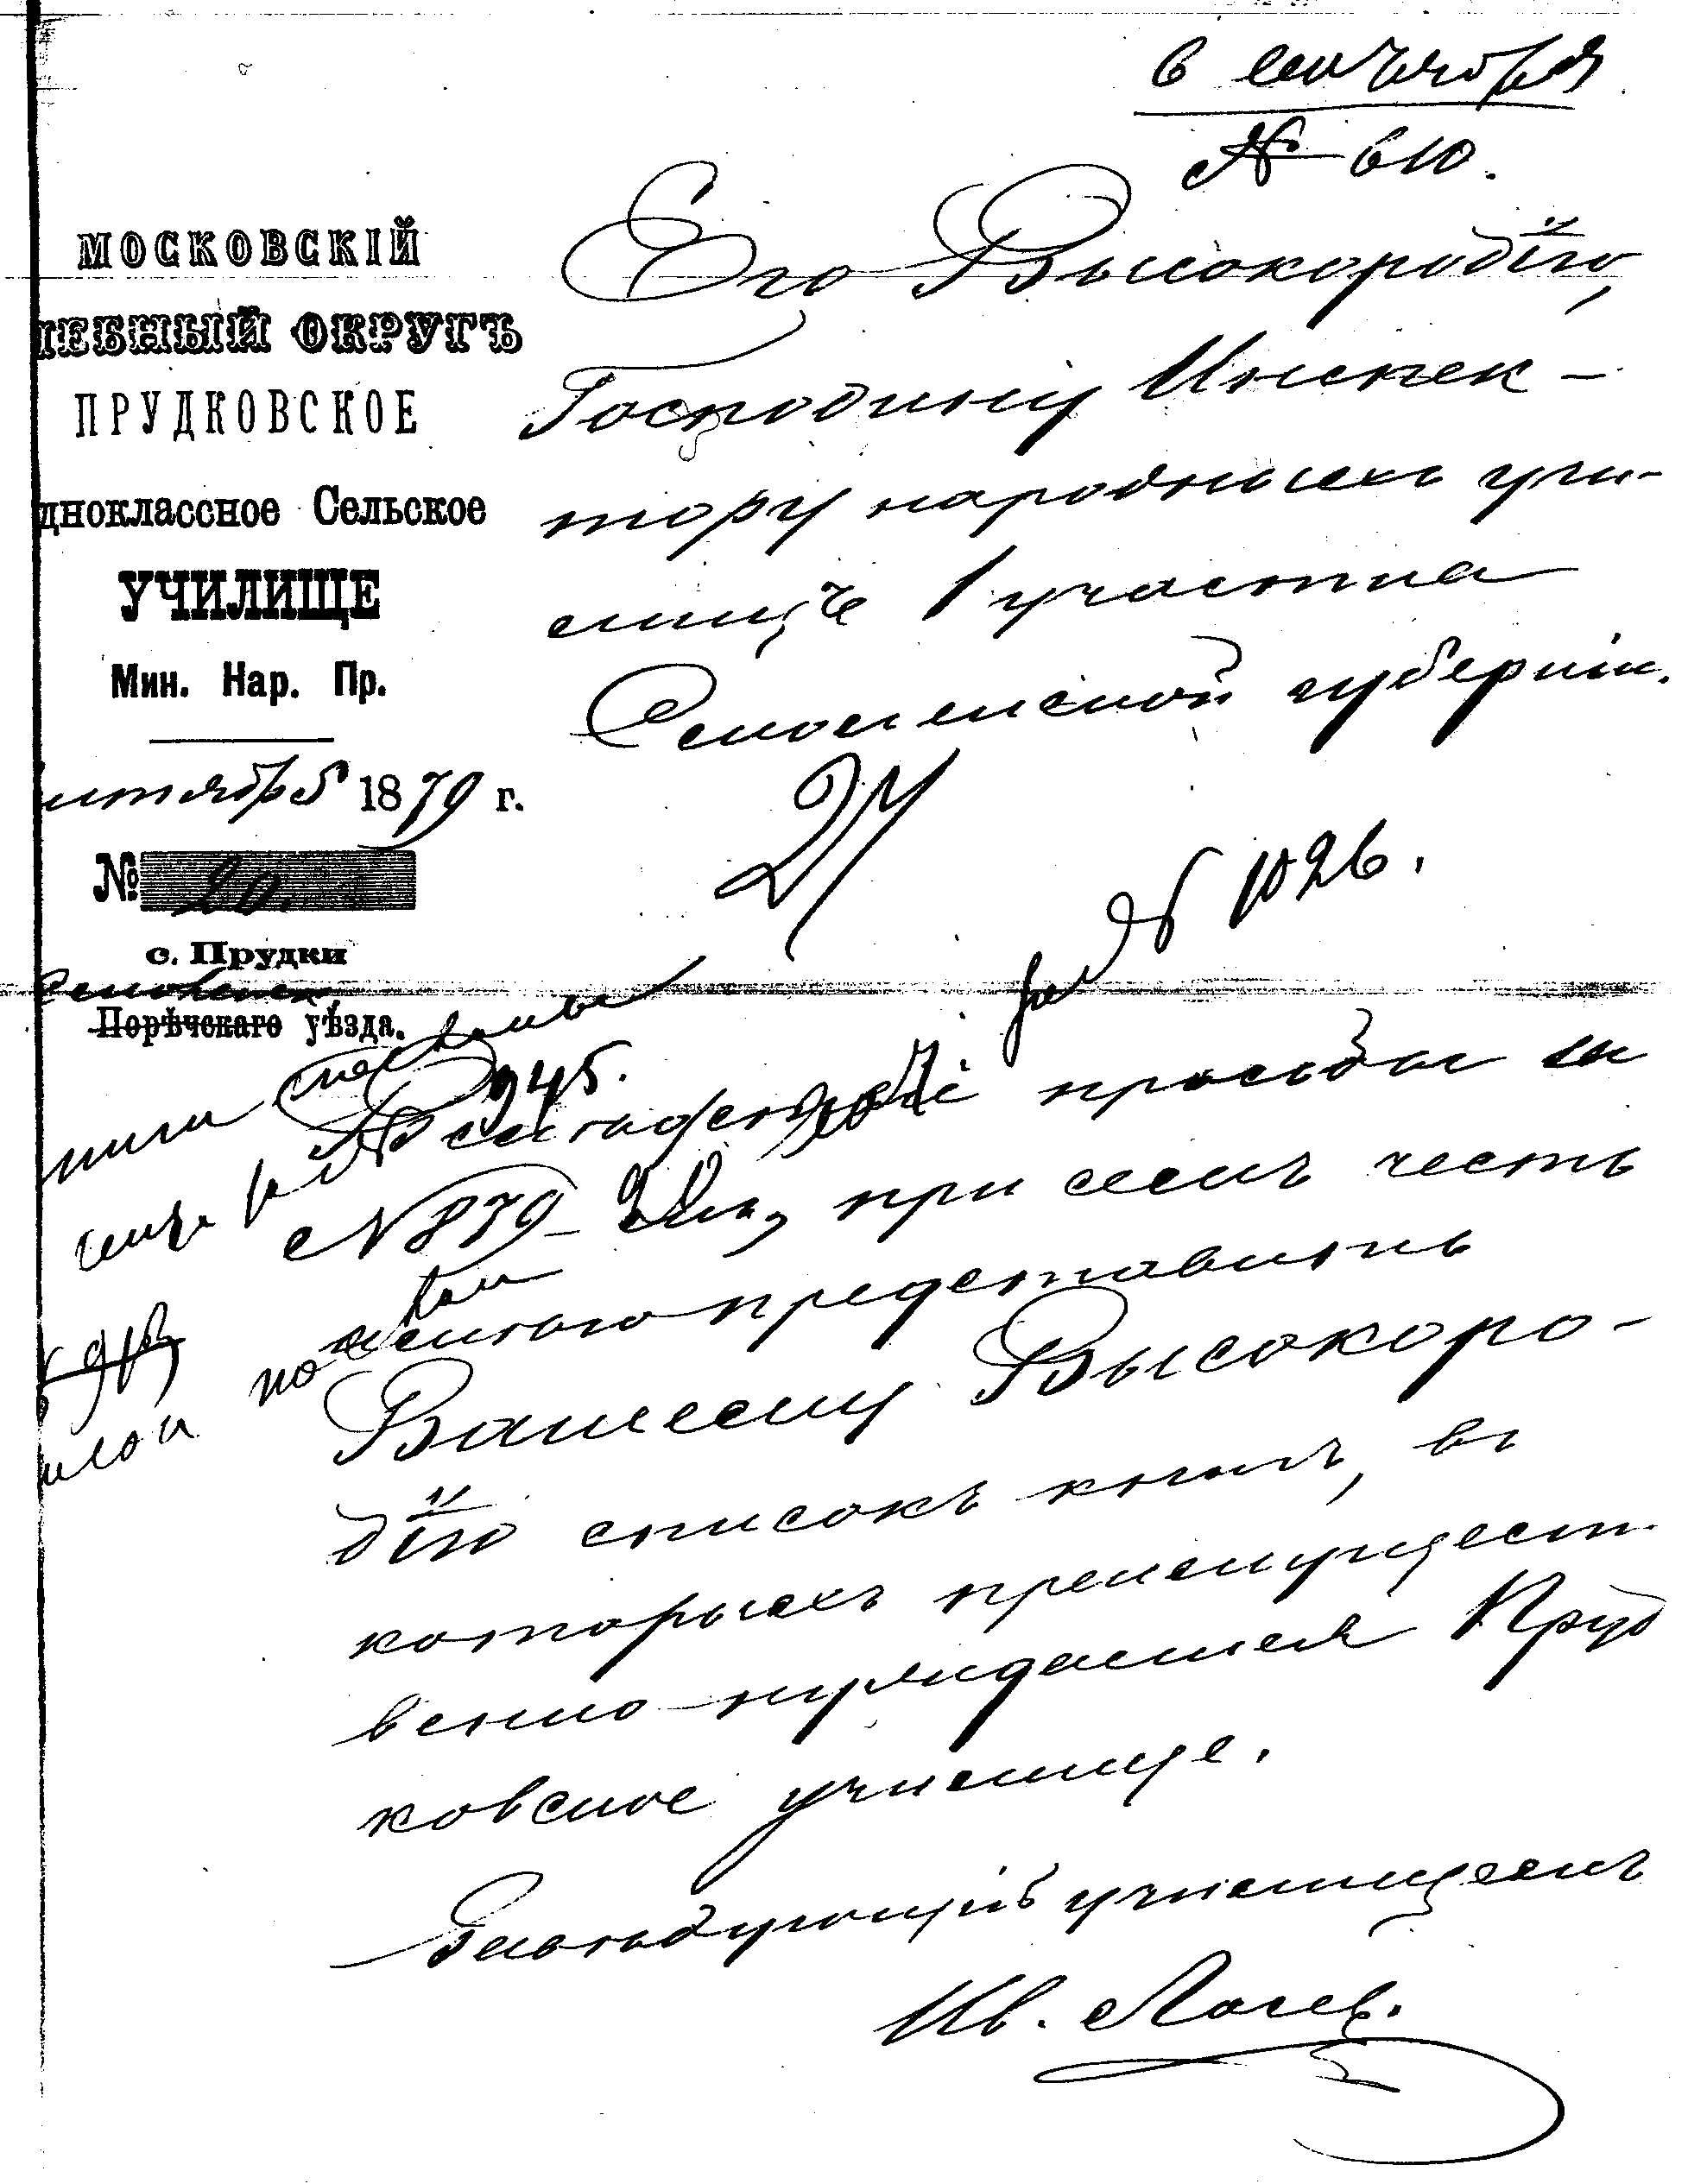 6 сентября
№ 610.
МОСКОВСКІЙ
ЧЕБНЫЙ ОКРУГЪ
ПРУДКОВСКОЕ
дноклассное Сельское
УЧИЛИЩЕ
Мин. Нар. Пр.
ентября 1879 г.
№ 20.
с. Прудки
Смоленск.
Порѣчскаго уѣзда.
Его Высокородiю,
Господину Инспек-
тору народныхъ учи-
лищъ 1 участка
Смоленской губерніи.
№ 1026.
945.
просьбы за
№ 879 при семъ честь
имѣю представить
Вашему Высокоро-
дiю списокъ книгъ, въ
которыхъ преимущест-
венно нуждается Пруд
ковское училище.
Завѣдующій училищемъ
Ив. Лосев.